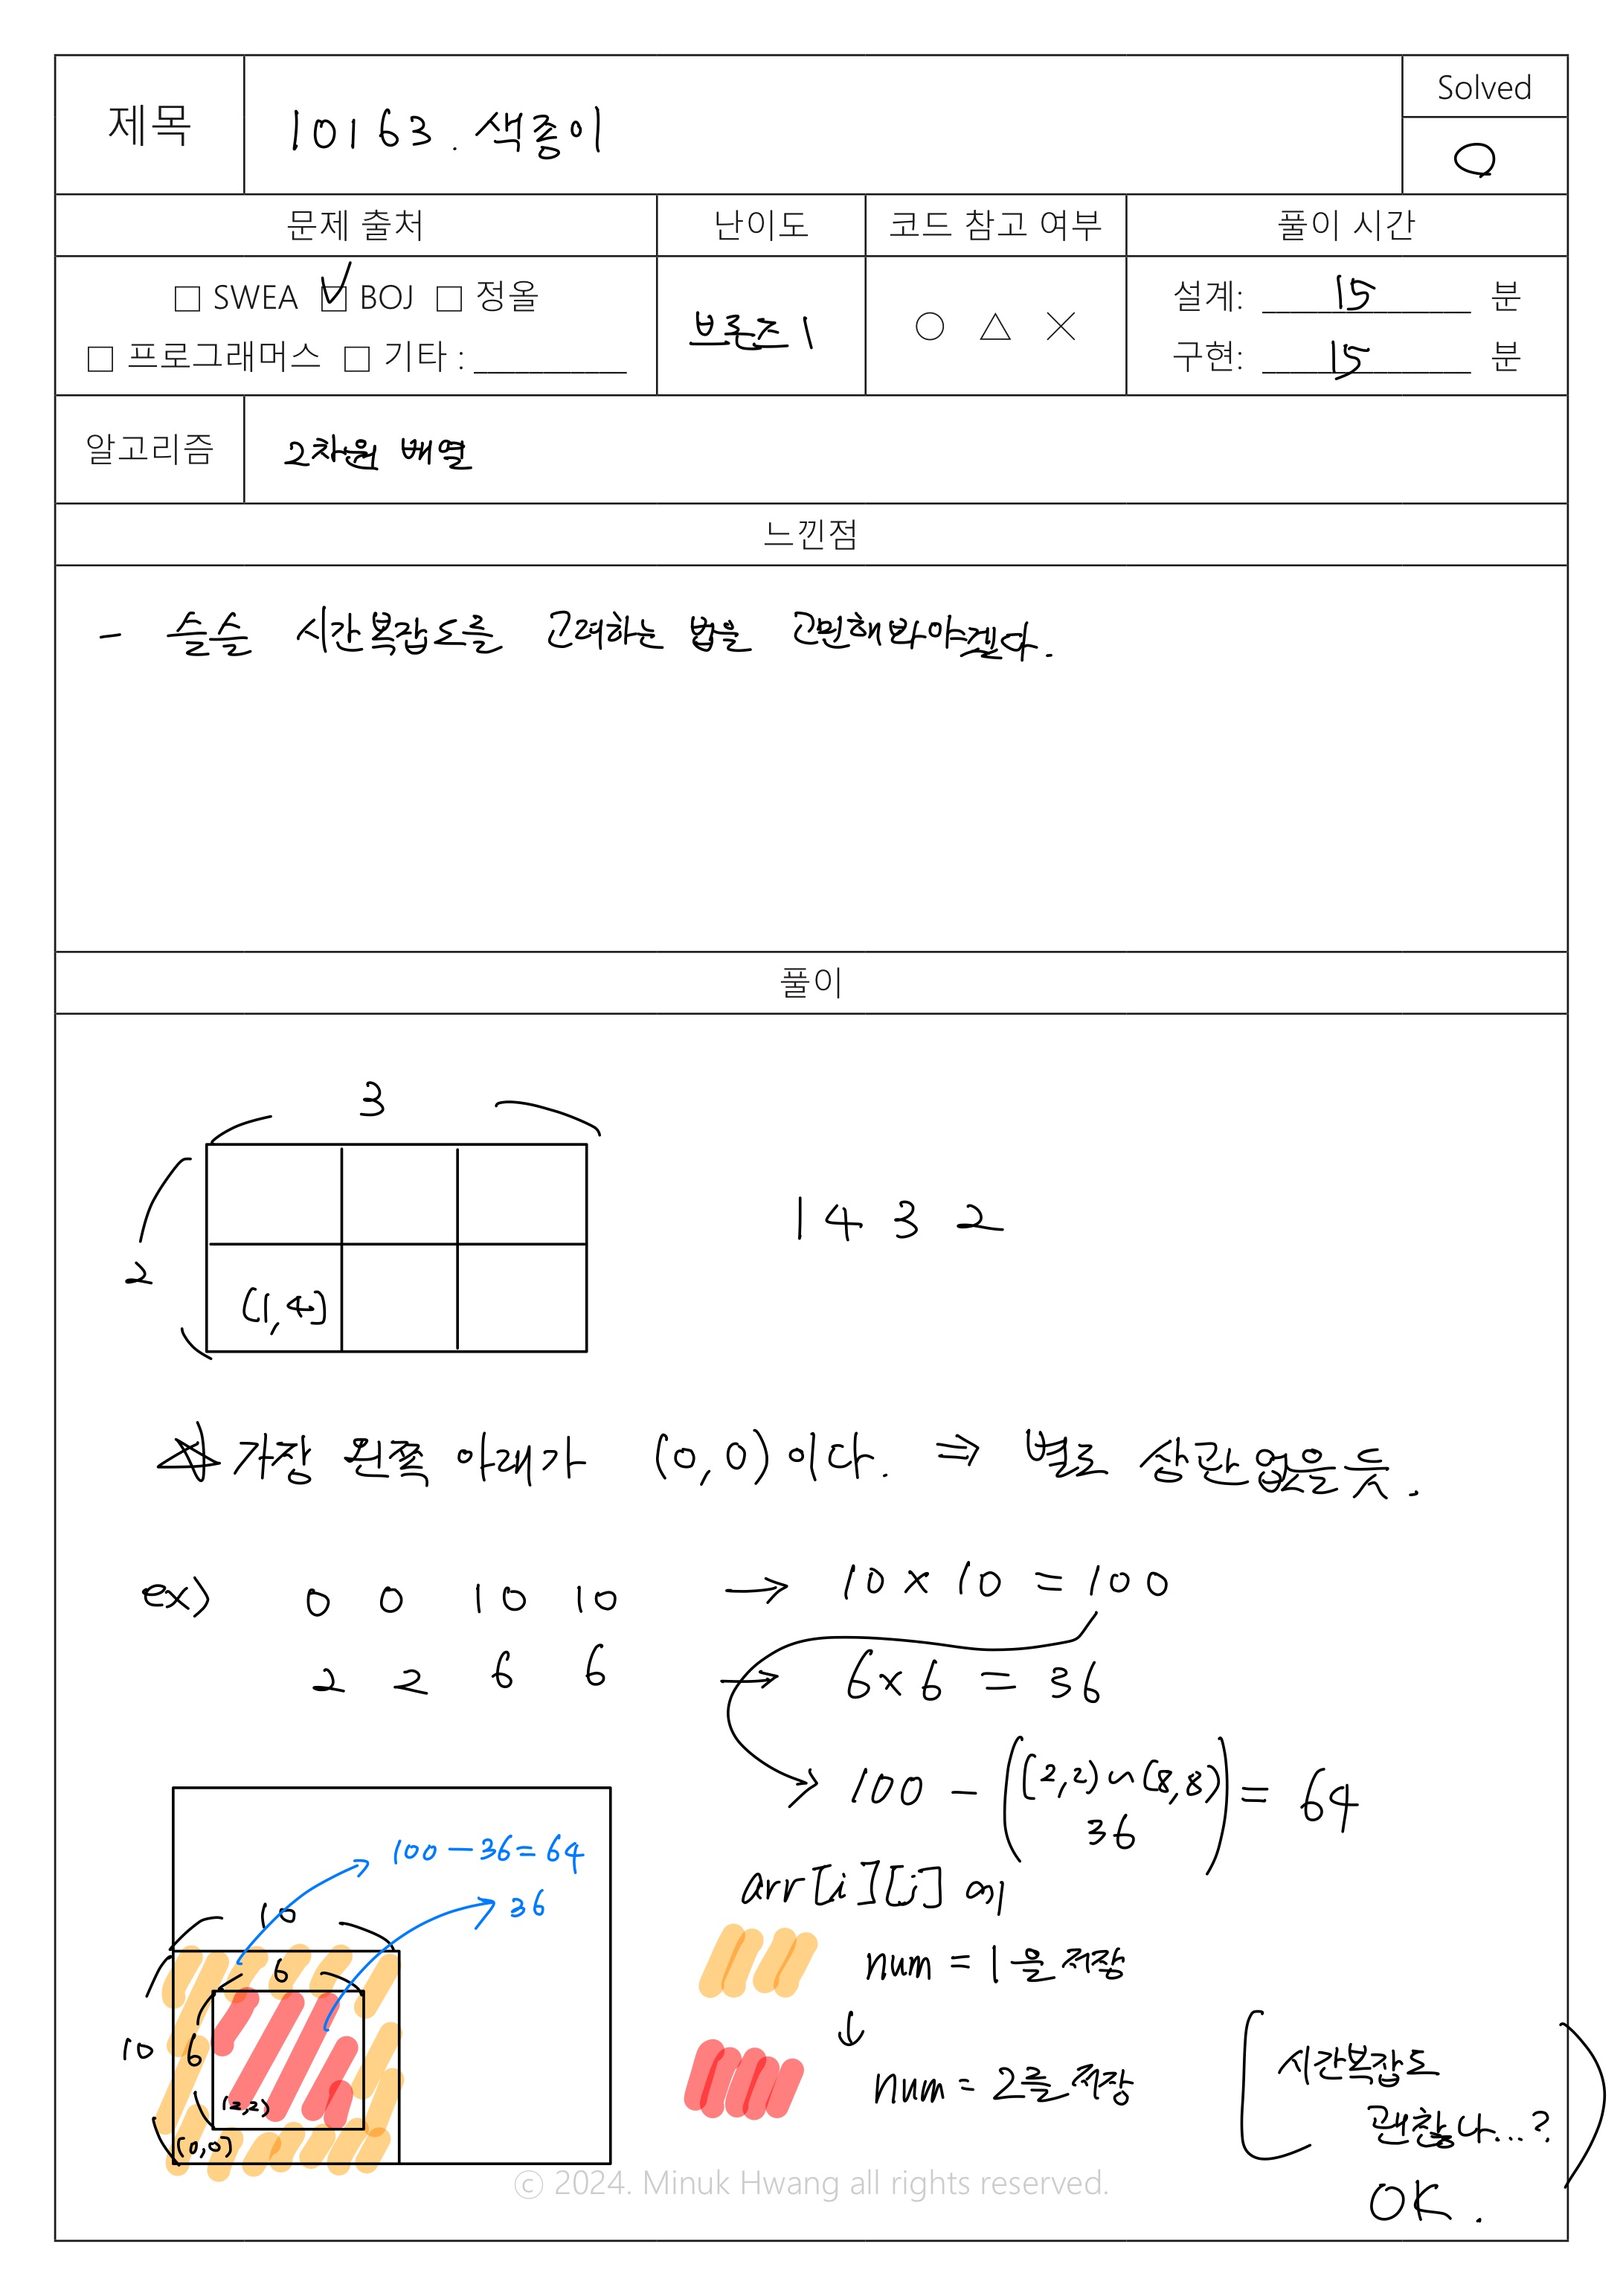 제목
10163. 색종이
Solved
O
문제 출처
난이도
코드 참고 여부
풀이 시간
□ SWEA ☑ BOJ □ 정올
□ 프로그래머스 □ 기타 : ___________
브론즈 1
○ △ ×
설계: 15 분
구현: 15 분
알고리즘
2차원 배열
느낀점
- 슬슬 시간복잡도를 고려하는 법을 고민해봐야겠다.
풀이
3
2
(1,4)
1 4 3 2
☆ 가장 왼쪽 아래가 (0,0)이다. ⇒ 별로 상관 없을 듯.
ex) 0 0 10 10 → 10 × 10 = 100
2 2 6 6 → 6×6 = 36
100 - ((2,2)~(8,8) 36) = 64
100-36=64
36
10
6
10
6
(2,2)
(0,0)
arr[i][j]에
num = 1을 저장
↓
num = 2를 저장
시간복잡도
괜찮나...?
OK.
© 2024. Minuk Hwang all rights reserved.